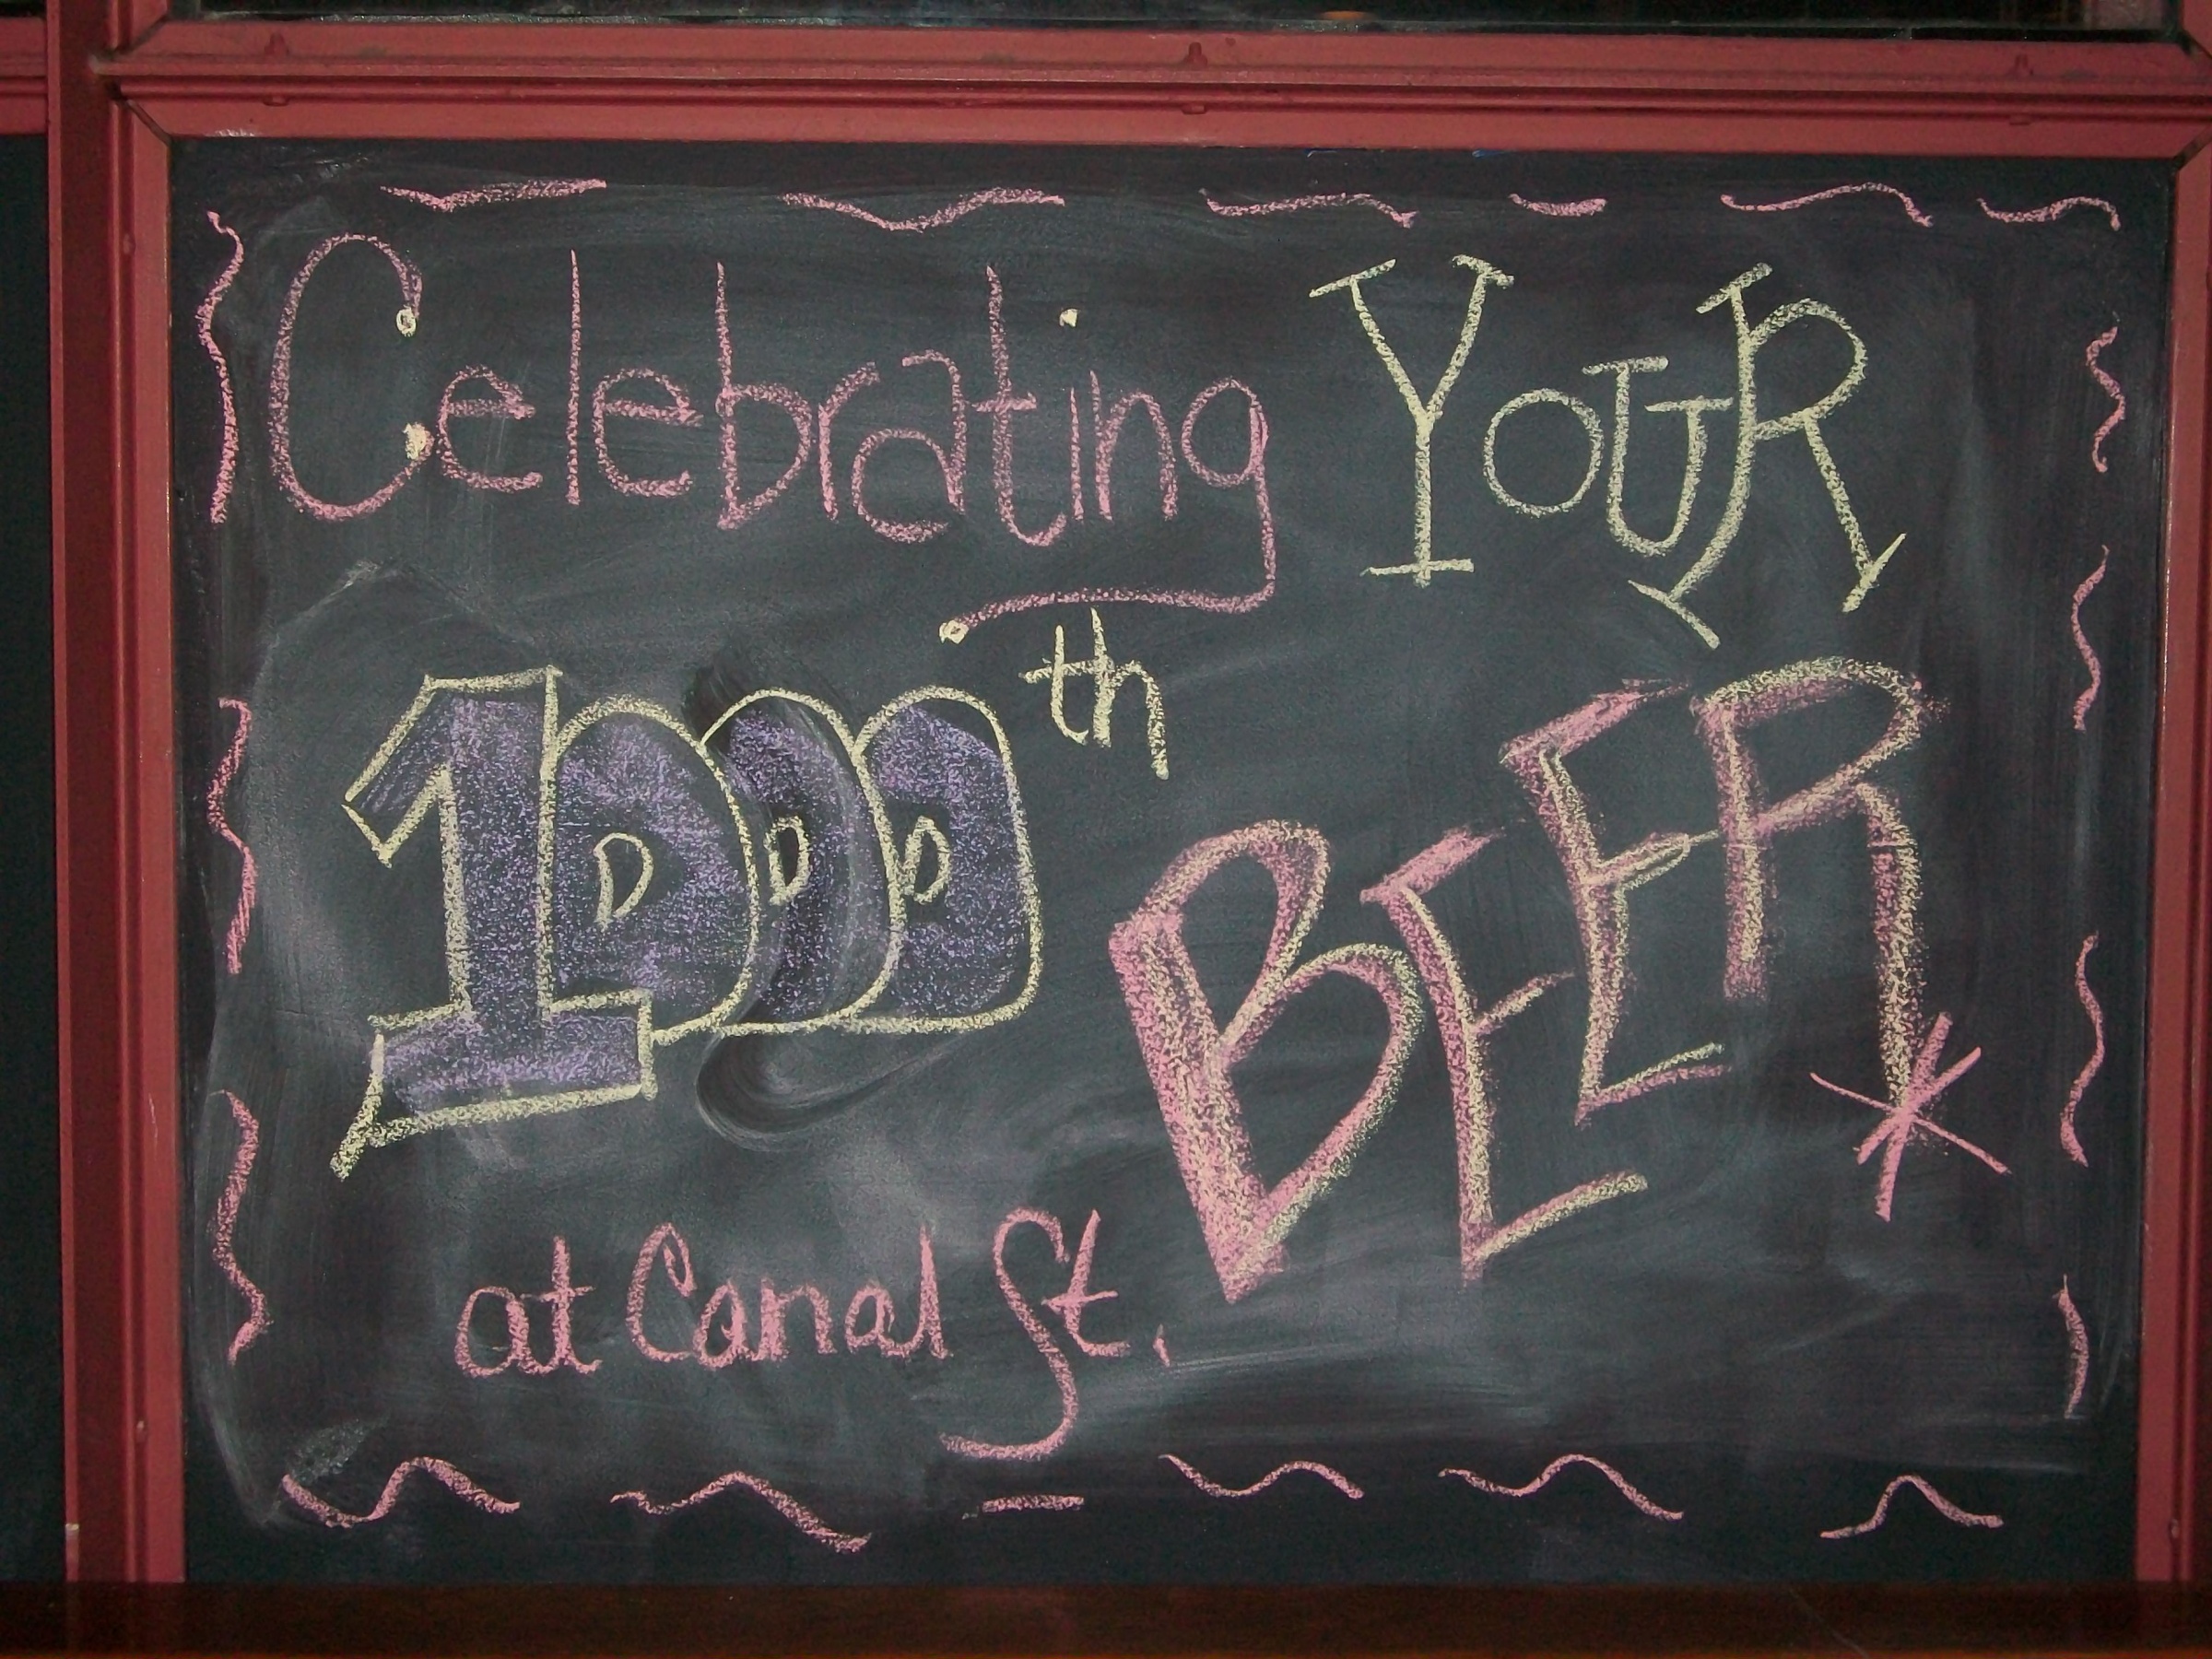 Celebrating YOUR
1000th BEER*
at Canal St.